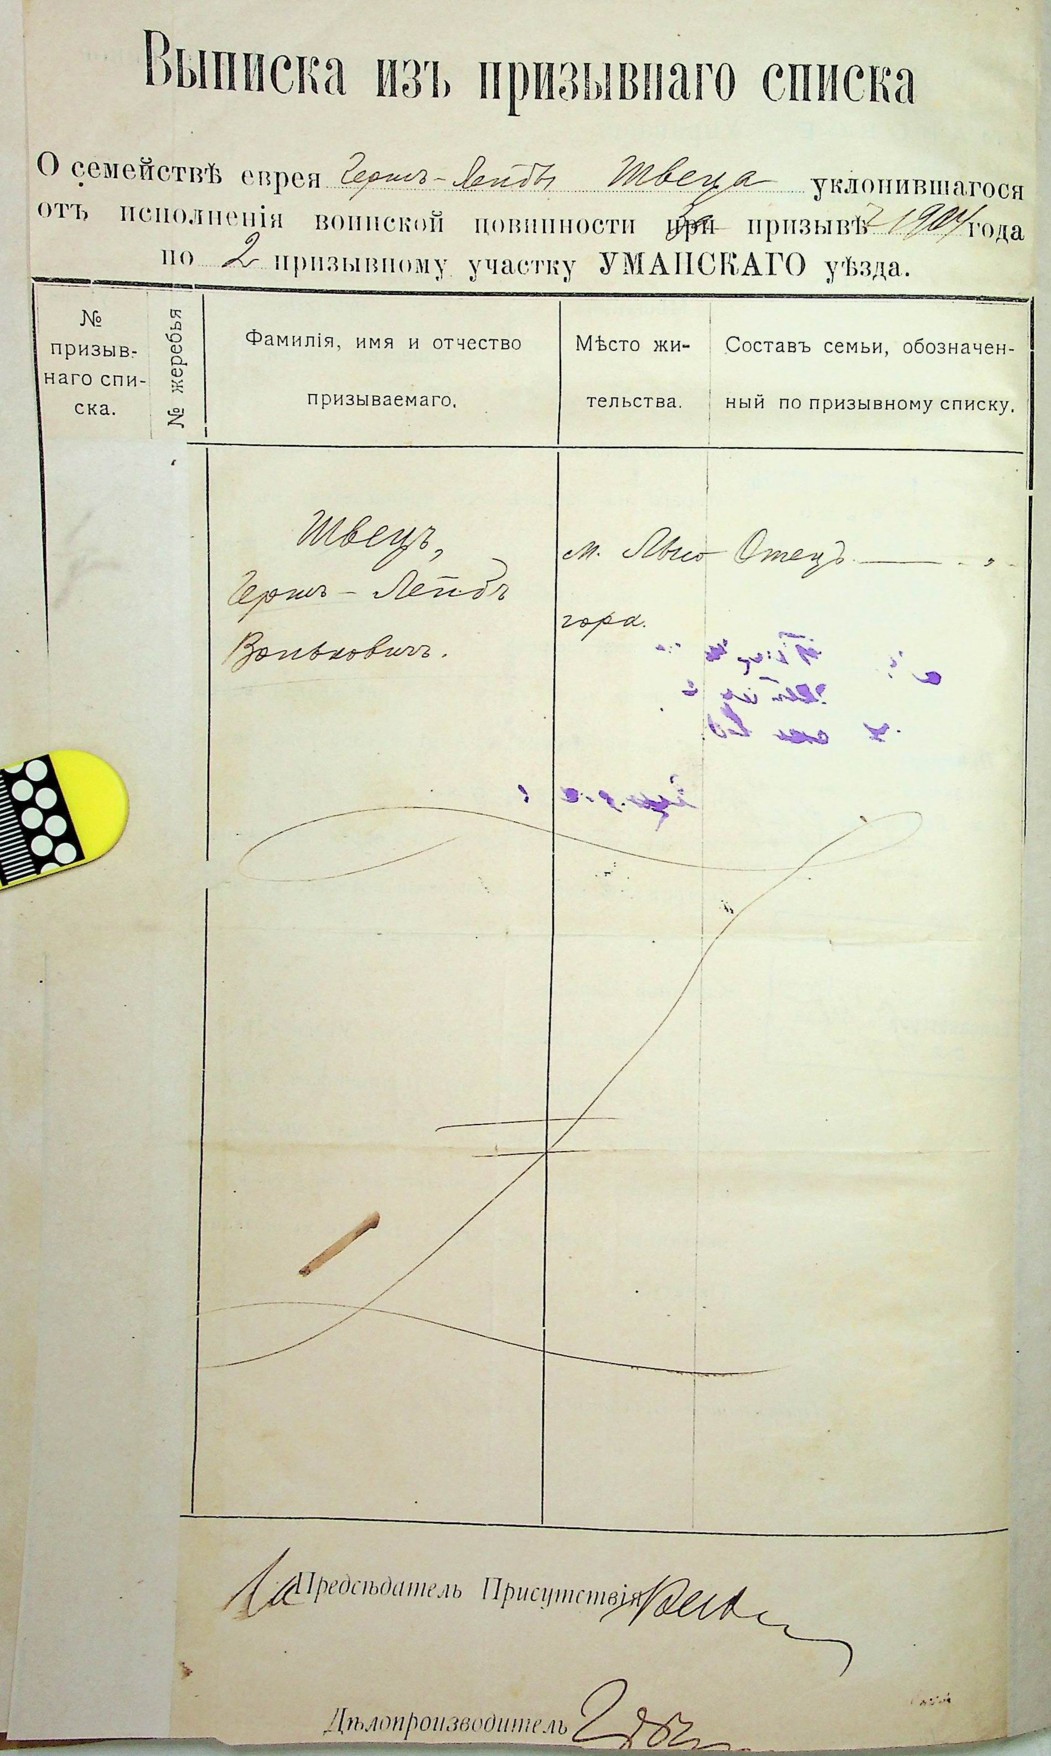 Выписка изъ призывнаго списка
О семействѣ еврея Герш-Лейбы Швеца уклонившагося
отъ исполненія воинской повинности при призывѣ 1904 года
по 2 призывному участку УМАНСКАГО уѣзда.
№ призыв-
наго спи-
ска.
№ жеребья
Фамилія, имя и отчество
призываемаго.
Мѣсто жи-
тельства.
Составъ семьи, обозначен-
ный по призывному списку.
Швецъ,
Гершъ-Лейбъ
м. Лысо
гора.
Отецъ
За Предсѣдатель Присутствія
Дѣлопроизводитель